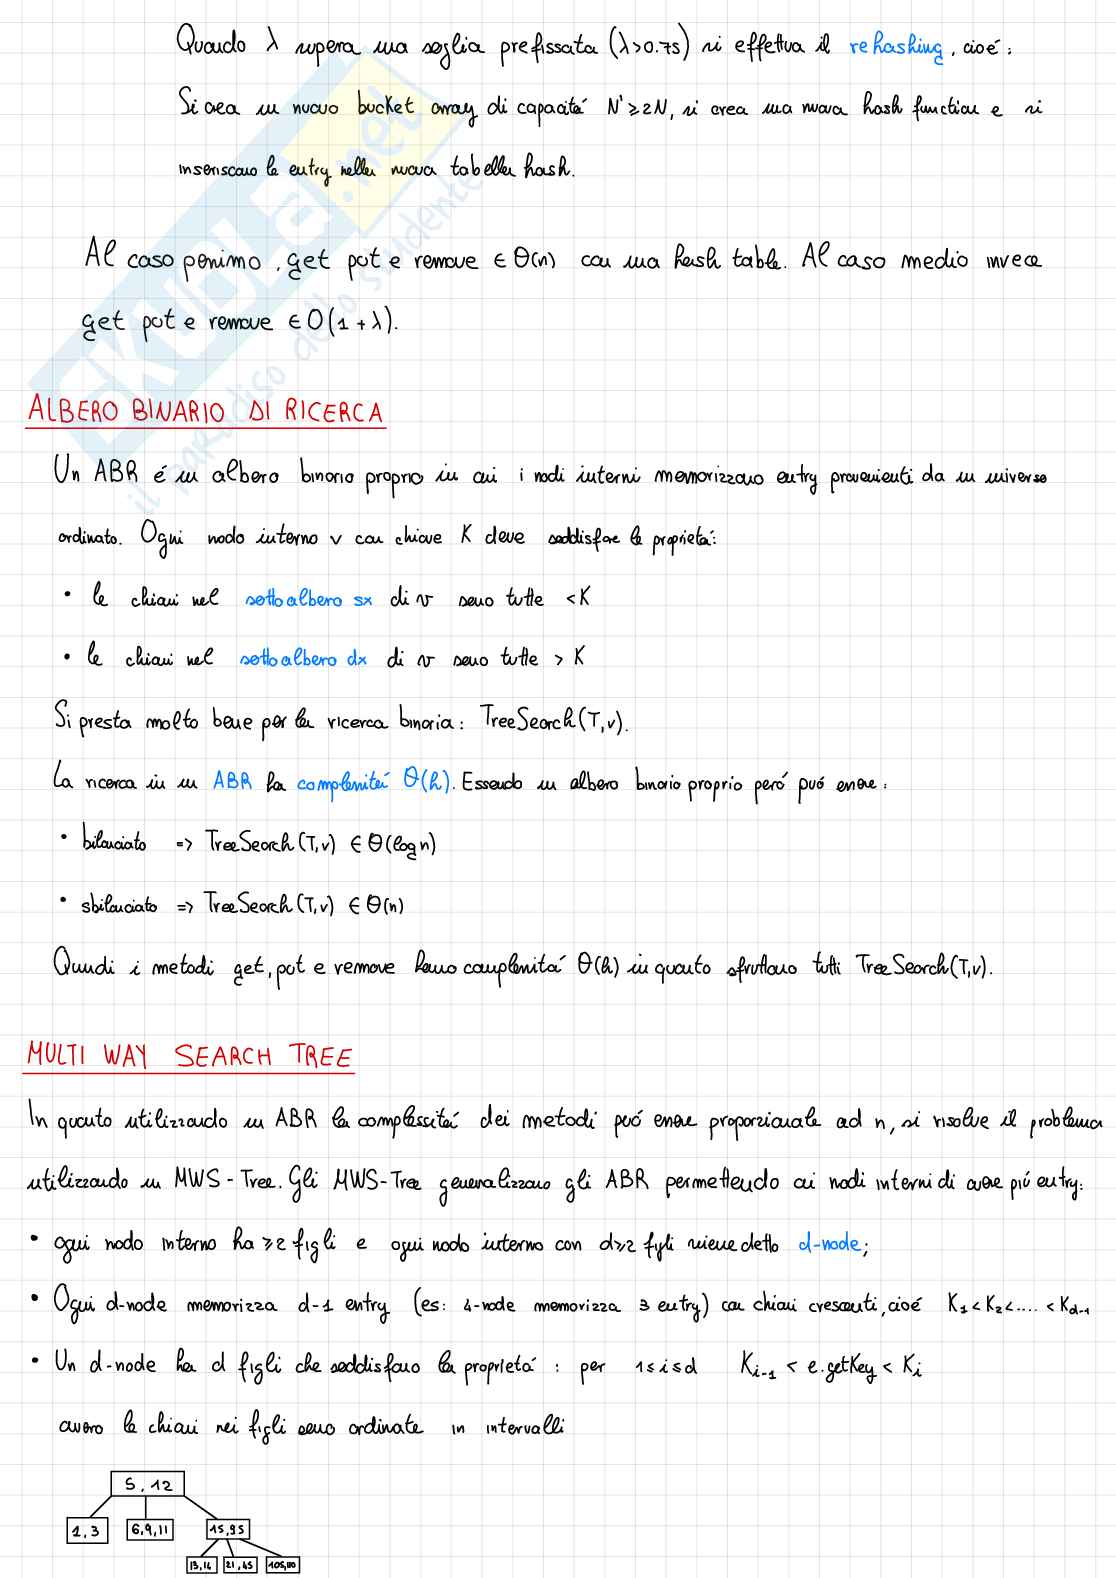 Quando λ supera una soglia prefissata (λ>0.75) si effettua il rehashing, cioé:
Si crea un nuovo bucket array di capacitá N'≥2N, si crea una nuova hash function e si
inseriscono le entry nella nuova tabella hash.
Al caso pessimo, get put e remove ∈ Θ(n) con una hash table. Al caso medio invece
get put e remove ∈ O(1+λ).
ALBERO BINARIO DI RICERCA
Un ABR é un albero binario proprio in cui i nodi interni memorizzano entry provenienti da un universo
ordinato. Ogni nodo interno v con chiave K deve soddisfare le proprietá:
• le chiavi nel sottoalbero sx di v sono tutte <K
• le chiavi nel sottoalbero dx di v sono tutte > K
Si presta molto bene per la ricerca binaria: TreeSearch(T,v).
La ricerca in un ABR ha complessitá Θ(h). Essendo un albero binario proprio peró puó essere:
• bilanciato => TreeSearch(T,v) ∈ Θ(logn)
• sbilanciato => TreeSearch(T,v) ∈ Θ(n)
Quindi i metodi get, put e remove hanno complessitá Θ(h) in quanto sfruttano tutti TreeSearch(T,v).
MULTI WAY SEARCH TREE
In quanto utilizzando un ABR la complessitá dei metodi puó essere proporzionale ad n, si risolve il problema
utilizzando un MWS-Tree. Gli MWS-Tree generalizzano gli ABR permettendo ai nodi interni di avere piú entry:
• ogni nodo interno ha ≥2 figli e ogni nodo interno con d≥2 figli viene detto d-node;
• Ogni d-node memorizza d-1 entry (es: 4-node memorizza 3 entry) con chiavi crescenti, cioé K1<K2<....<Kd-1
• Un d-node ha d figli che soddisfano la proprietá: per 1≤i≤d Ki-1 < e.getKey < Ki
ovvero le chiavi nei figli sono ordinate in intervalli
5, 12
1, 3 6,9,11 15,95
13,14 21,45 105,110
SKUOLA.net
il paradiso dello studente